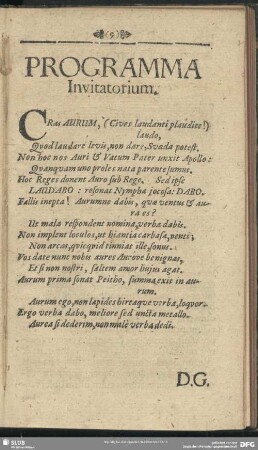 (9)
PROGRAMMA
Invitatorium.
CRas AURUM, (Cives laudanti plaudite!)
laudo,
Quod laudare levis, non dare, Svada potest,
Non hoc nos Auri & Vatum Pater unxit Apollo:
Quanquam uno proles nata parente sumus.
Hoc Reges donent Auro sub Rege. Sed ipse
LAUDABO: resonas Nympha jocosa: DABO.
Fallis inepta! Aurumne dabis, quæ ventus & au-
ra es?
Ut mala respondent nomina, verba dabis.
Non implent loculos, ut hiantia carbasa, venti;
Non arcas, quicquid tinniat ille, sonus.
Vos date nunc nobis aures Aurore benignas,
Et si non nostri, saltem amor hujus agat.
Aurum prima sonat Peitho, summa exit in au-
rum.
Aurum ego, non lapides hirtaque verba, loquor.
Ergo verba dabo, meliore sed uncta metallo.
Aurea si dederim, non male verba dedi.
D.G.
SLUB
DFG